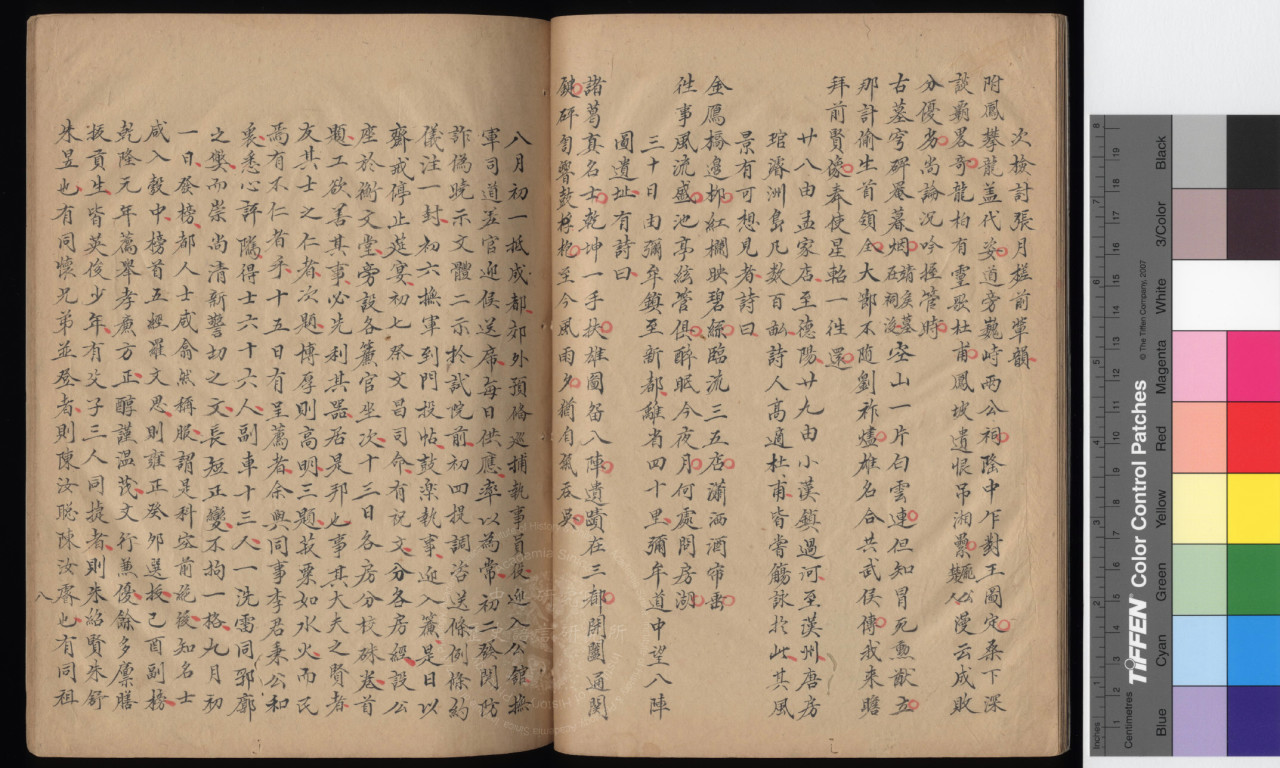 次檢討張月槎前輩韻
附鳳攀龍蓋代姿道旁巍峙兩公祠隆中乍對王圖定桑下深
談霸畧奇龍柏有靈歌杜甫鳳坡遺恨吊湘纍龐公楚人漫云成敗
分優劣尚論況吟握管時
古墓穹碑屢暮烟諸葛墓在祠後空山一片白雲連但知冒死勳猷立
那計偷生首領全大鄙不隨劉祚燼雄名合共武侯傳我來瞻
拜前賢像奉使星軺一往還
廿八由孟家店至德陽廿九由小漢鎮過河至漢州唐房
琯濬洲島凡數百畝詩人高適杜甫皆嘗觴詠於此其風
景有可想見者詩曰
金鴈橋邊柳紅欄映碧絲臨流三五店瀟洒酒帘垂
往事風流盛池亭絃管俱醉眠今夜月何處問房湖
三十日由彌牟鎮至新都離省四十里彌牟道中望八陣
圖遺址有詩曰
諸葛真名士乾坤一手扶雄圖留八陣遺蹟在三都開闔通關
鍵砰訇響鼓桴至今風雨夕猶自氣吞吳
八月初一抵成都郊外預備巡捕執事員役迎入公館撫
軍司道並官迎候送席每日供應率以為常初二發關防
詐偽曉示文體二示於試院前初四提調咨送條例條約
儀注一封初六撫軍到門投帖鼓樂執事迎入簾是日以
齋戒停止筵宴初七祭文昌司命有記文分各房經設公
座於衡文堂旁設各簾官坐次十三日各房分校硃卷首
題工欲善其事必先利其器居是邦也事其大夫之賢者
友其士之仁者次題博厚則高明三題菽粟如水火而民
焉有不仁者乎十五日有呈薦者余與同事李君秉公和
衷悉心評隲得士六十六人副車十三人一洗雷同郛廓
之獘而崇尚清新警切之文長短正變不拘一格九月初
一日發榜都人士咸翕然稱服謂是科空前絶後知名士
咸入彀中榜首五經羅文思則雍正癸卯選授己酉副榜
乾隆元年薦舉孝廉方正醇謹温茂文行兼優餘多廩膳
拔貢生皆英俊少年有父子三人同捷者則朱紹賢朱舒
朱昱也有同懷兄弟並登者則陳汝聪陳汝睿也有同祖
八